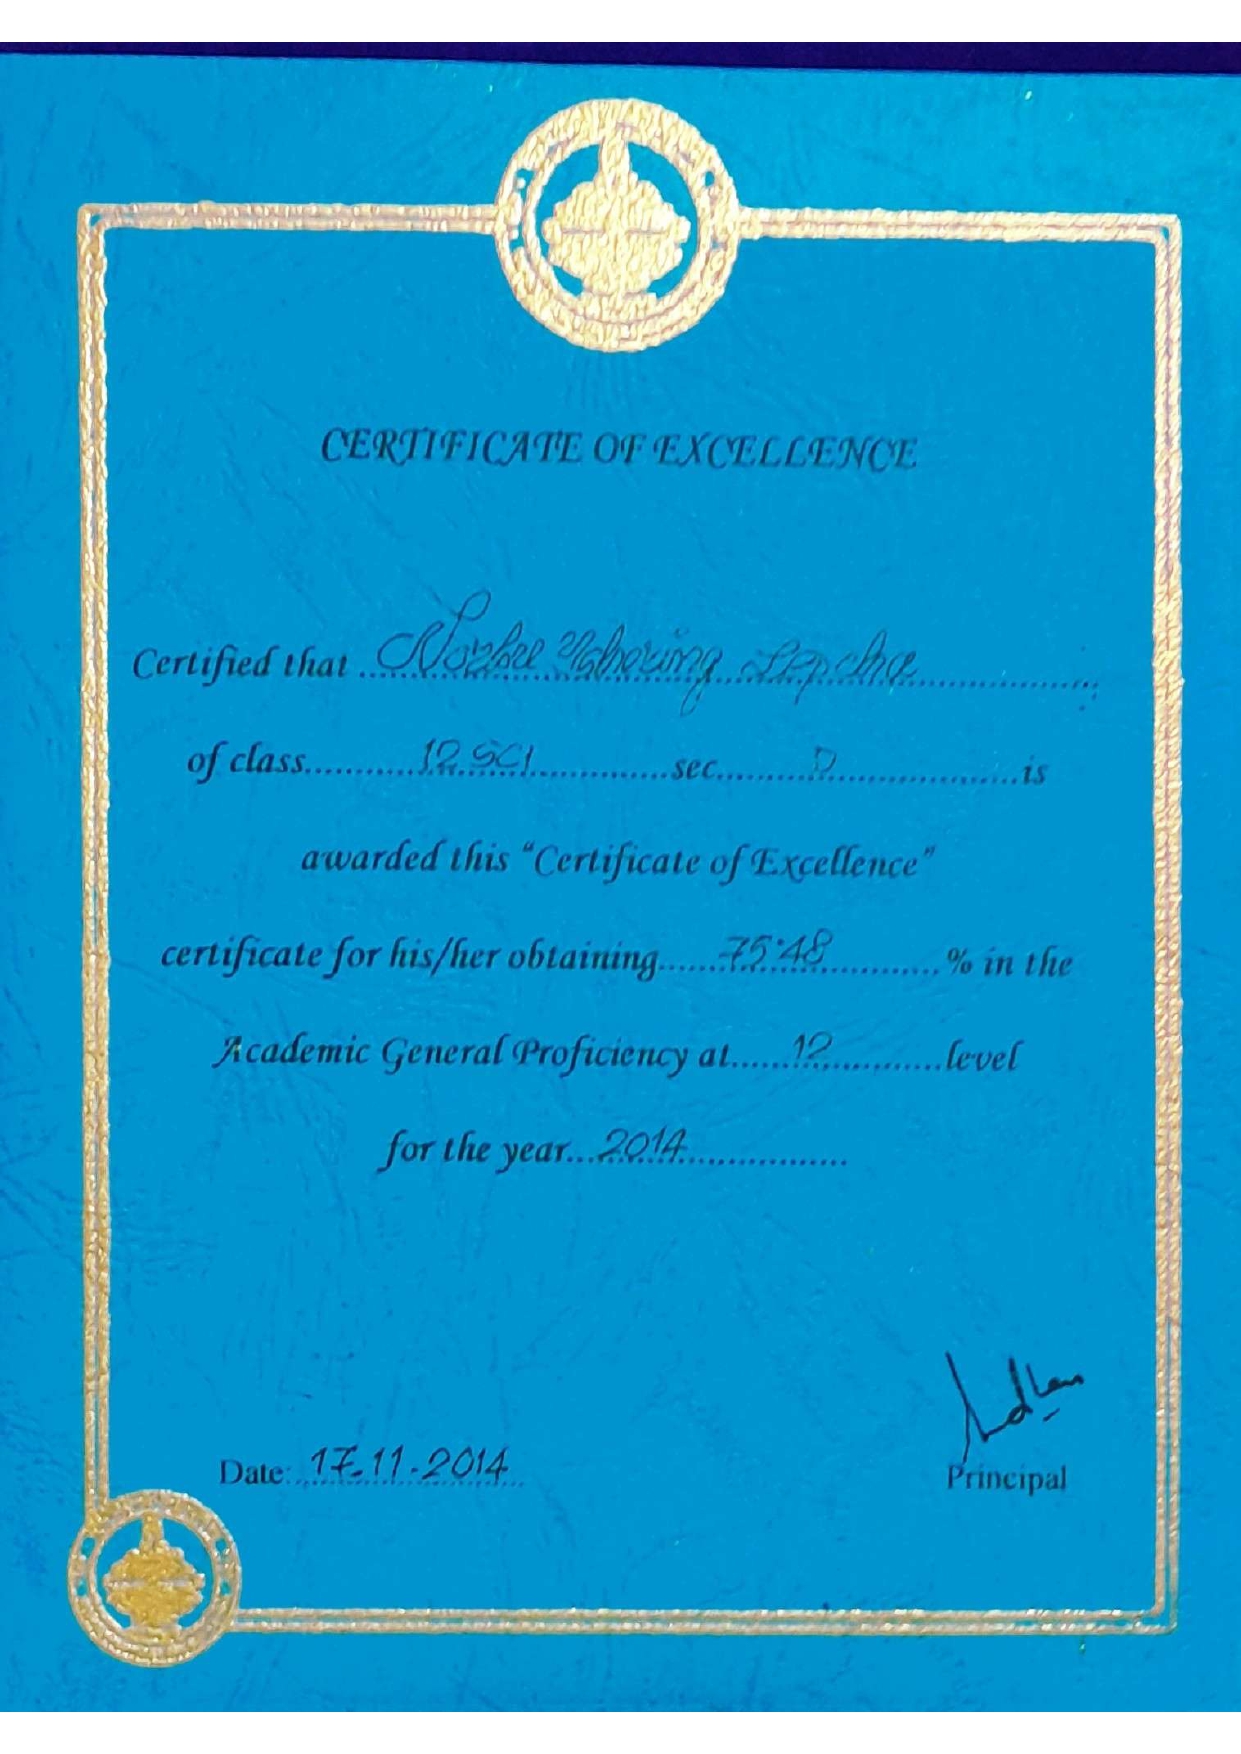 CERTIFICATE OF EXCELLENCE
Certified that ........ Tshering Lepcha ........
of class........12 SCI........sec........D........is
awarded this “Certificate of Excellence”
certificate for his/her obtaining......75.48........% in the
Academic General Proficiency at......12........level
for the year...2014........
Date: 17.11.2014
Principal